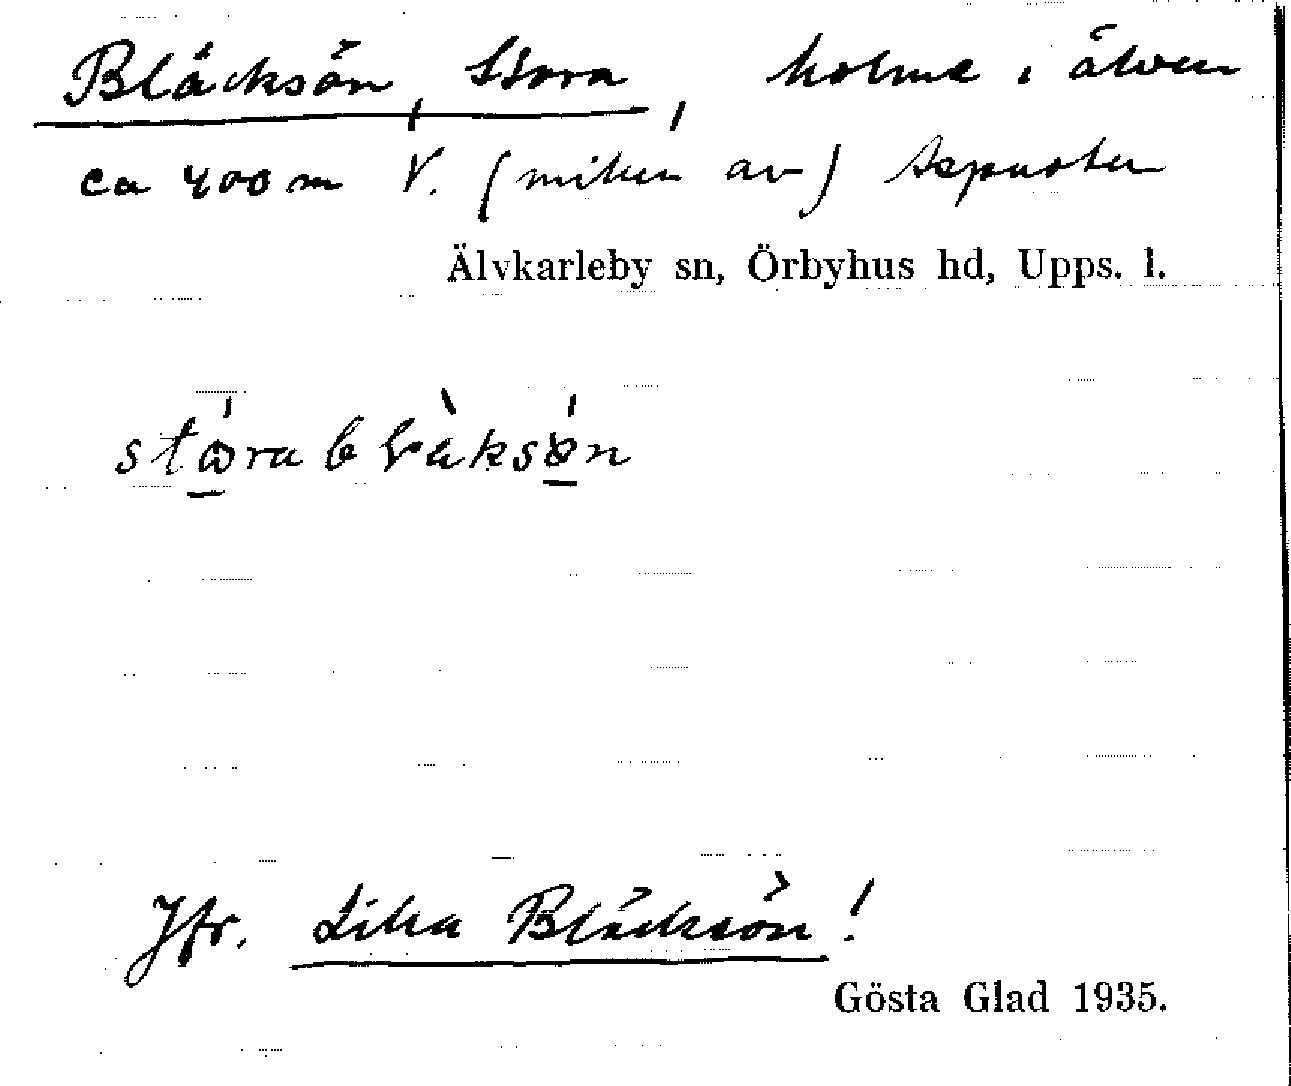 Bläcksön, Stora, holme i älven
ca 400 m V. (mitten av) Aspnoten
Älvkarleby sn, Örbyhus hd, Upps. l.
stώ̲ra blàksǿ̲n
Jfr. Lilla Bläcksön!
Gösta Glad 1935.